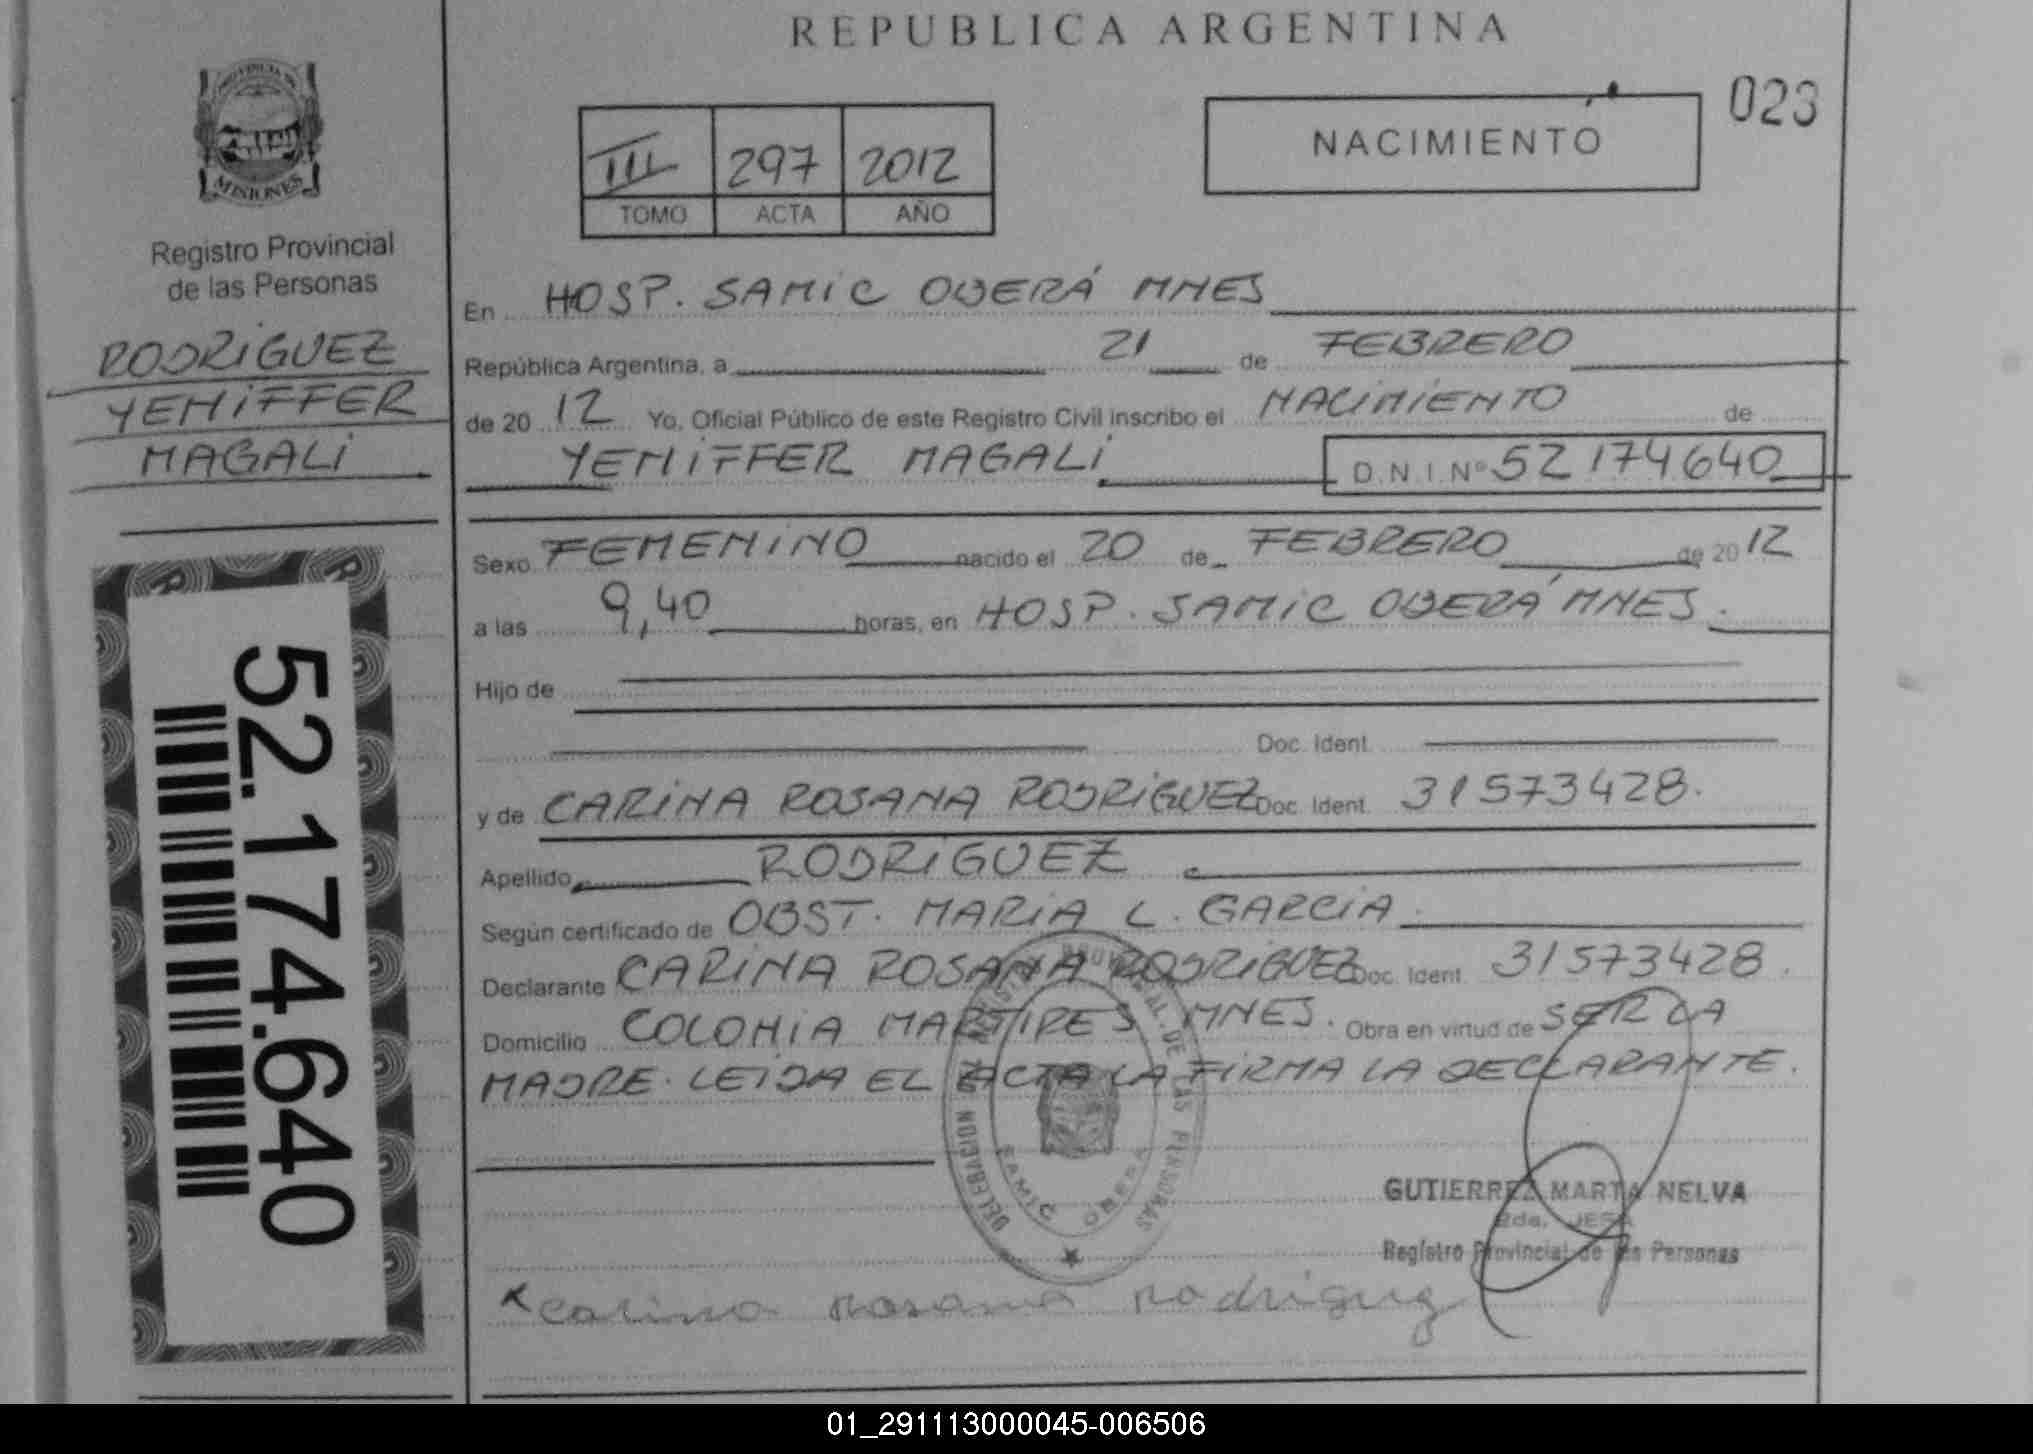 REPUBLICA ARGENTINA
023
NACIMIENTO
III 297 2012
TOMO ACTA AÑO
PROVINCIA DE
MISIONES
Registro Provincial
de las Personas
RODRIGUEZ
YENIFFER
MAGALI
52.174.640
En HOSP. SAMIC OBERÁ MNES
República Argentina, a 21 de FEBRERO
de 20 12 Yo, Oficial Público de este Registro Civil inscribo el NACIMIENTO de
YENIFFER MAGALI D.N.I. Nº 52174640
Sexo FEMENINO nacido el 20 de FEBRERO de 20 12
a las 9,40 horas, en HOSP. SAMIC OBERÁ MNES.
Hijo de
Doc. Ident.
y de CARINA ROSANA RODRIGUEZ Doc. Ident. 31573428.
Apellido RODRIGUEZ
Según certificado de OBST. MARIA L. GARCIA.
Declarante CARINA ROSANA RODRIGUEZ Doc. Ident. 31573428.
Domicilio COLONIA MARTIRES MNES. Obra en virtud de SER LA
MADRE. LEIDA EL ACTA LA FIRMA LA DECLARANTE.
DELEGACION REGISTRO PROVINCIAL DE LAS PERSONAS
SAMIC OBERA
GUTIERREZ MARTA NELVA
2da. JEFA
Registro Provincial de las Personas
x Carina Rosana Rodriguez
01_291113000045-006506